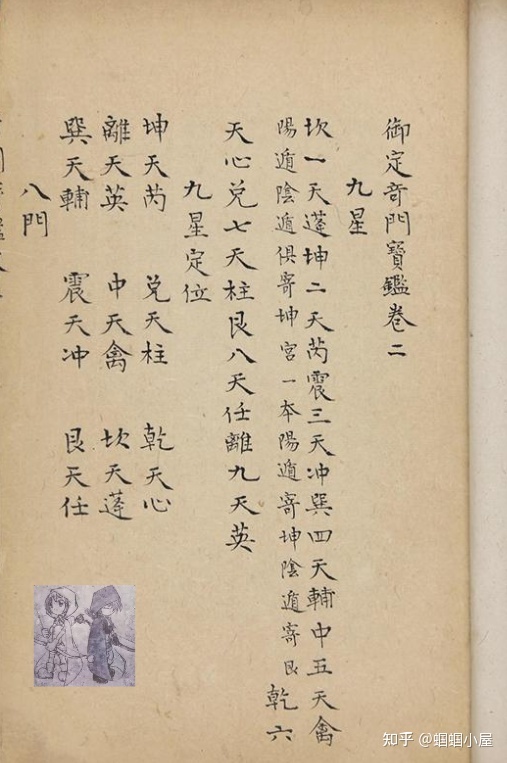 御定竒門寶鑑卷二
九星
坎一天蓬坤二天芮震三天冲巽四天輔中五天禽
陽遁陰遁俱寄坤宮一本陽遁寄坤陰遁寄艮乾六
天心兑七天柱艮八天任離九天英
九星定位
坤天芮 兑天柱 乾天心
離天英 中天禽 坎天蓬
巽天輔 震天冲 艮天任
八門
知乎 @蝈蝈小屋